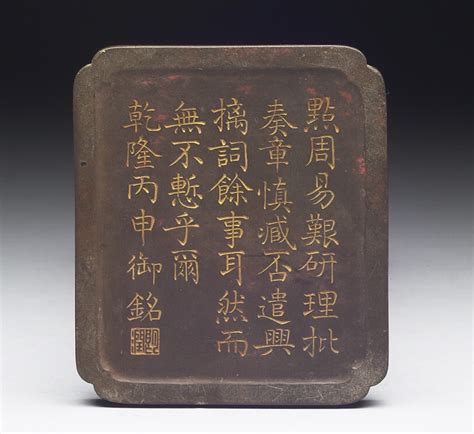 點周易艱研理批
奏章慎臧否遣興
摛詞餘事耳然而
無不慙乎爾
乾隆丙申御銘
朗潤